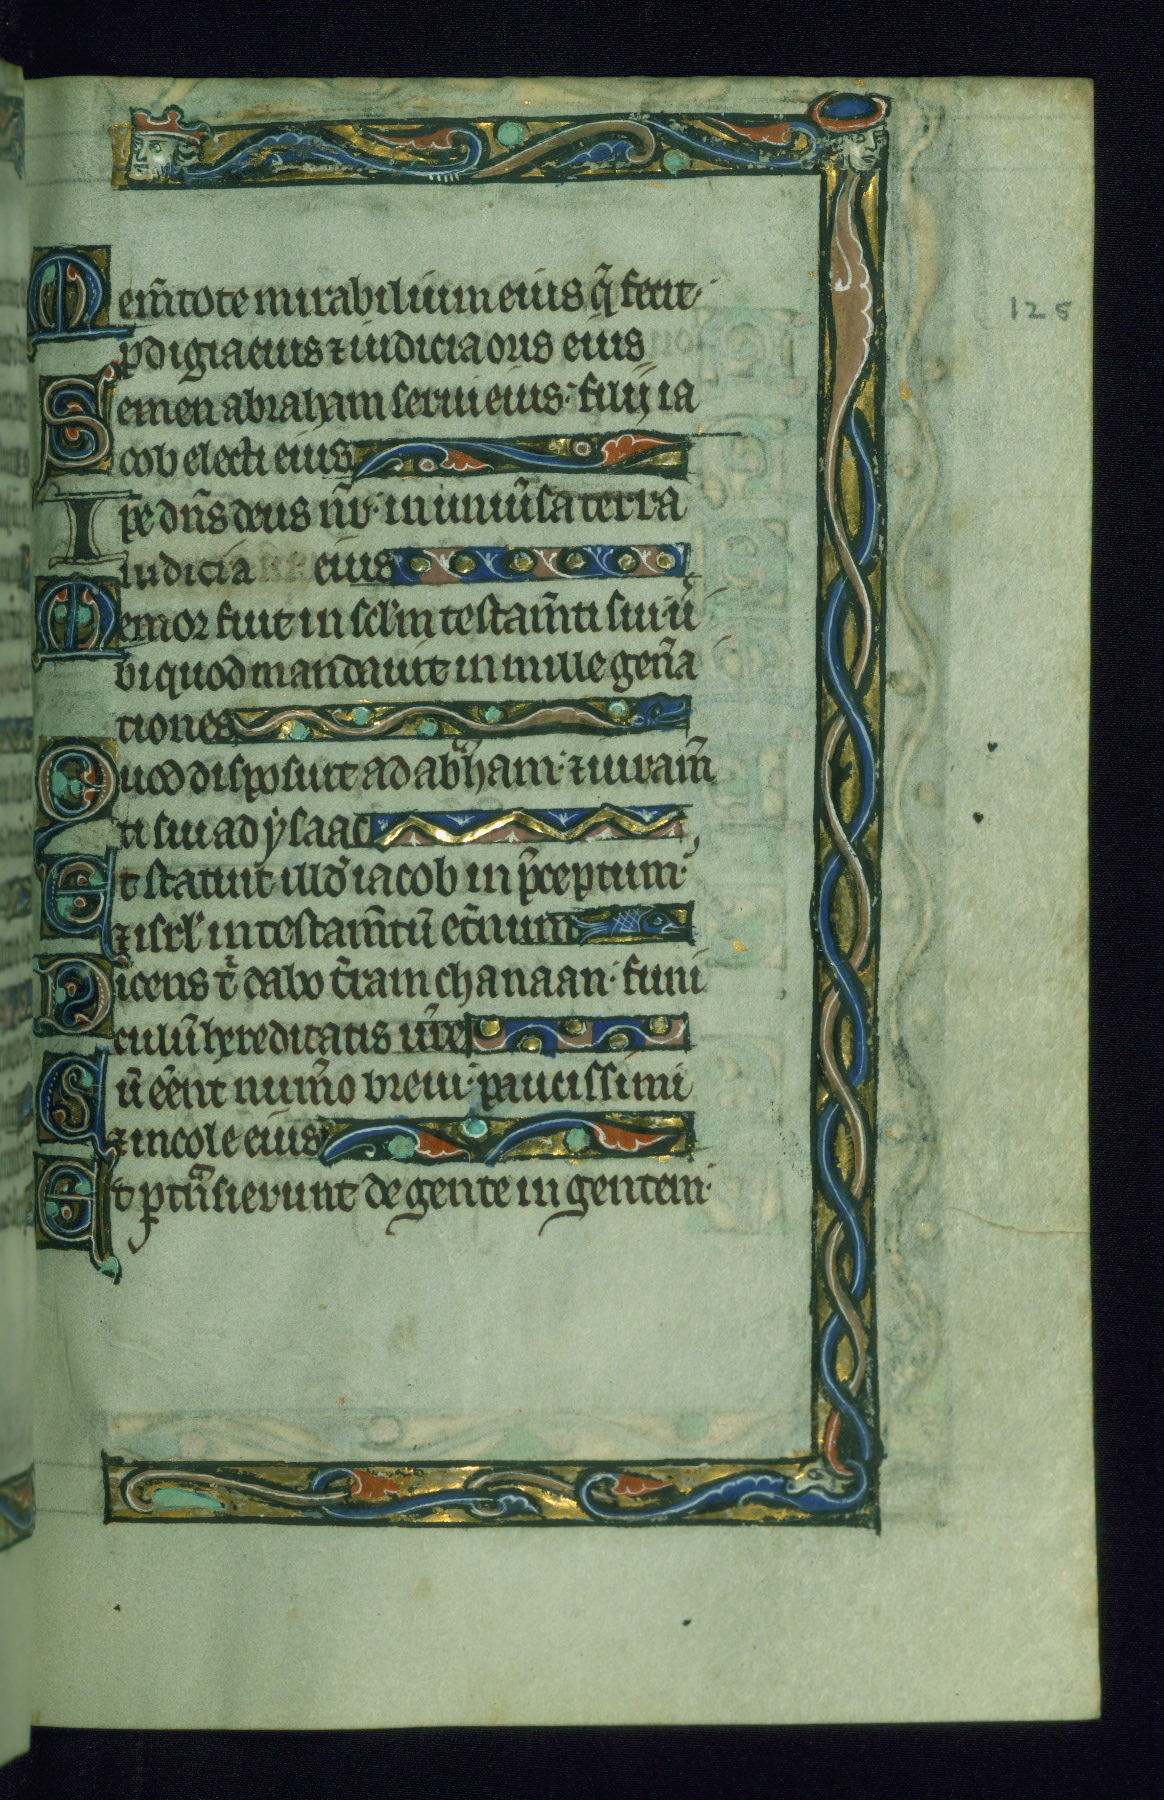 Mem̃tote mirabilium eius q̃ fecit·
pdigia eius ⁊ iudicia oris eius
Semen abraham serui eius· filij ia
cob electi eius
Ipe dñs deus nr̃· in uniũsa terra
iudicia eius
Memor fuit in sclm testam̃ti sui· ũ
bi quod mandauit in mille geña
tiones
Quod disposuit ad abͣham· ⁊ iuram̃
ti sui ad ẏsaac
Et statuit illđ iacob in p̃ceptum·
⁊ isrl' in testam̃tũ et̃num
Dicens tͥ dabo t̃ram chanaan· funi
culũ hereditatis ur̃e
Cũ eẽnt num̃o breui· paucissimi
⁊ incole eius
Et ptͣnsierunt de gente in gentem·
125